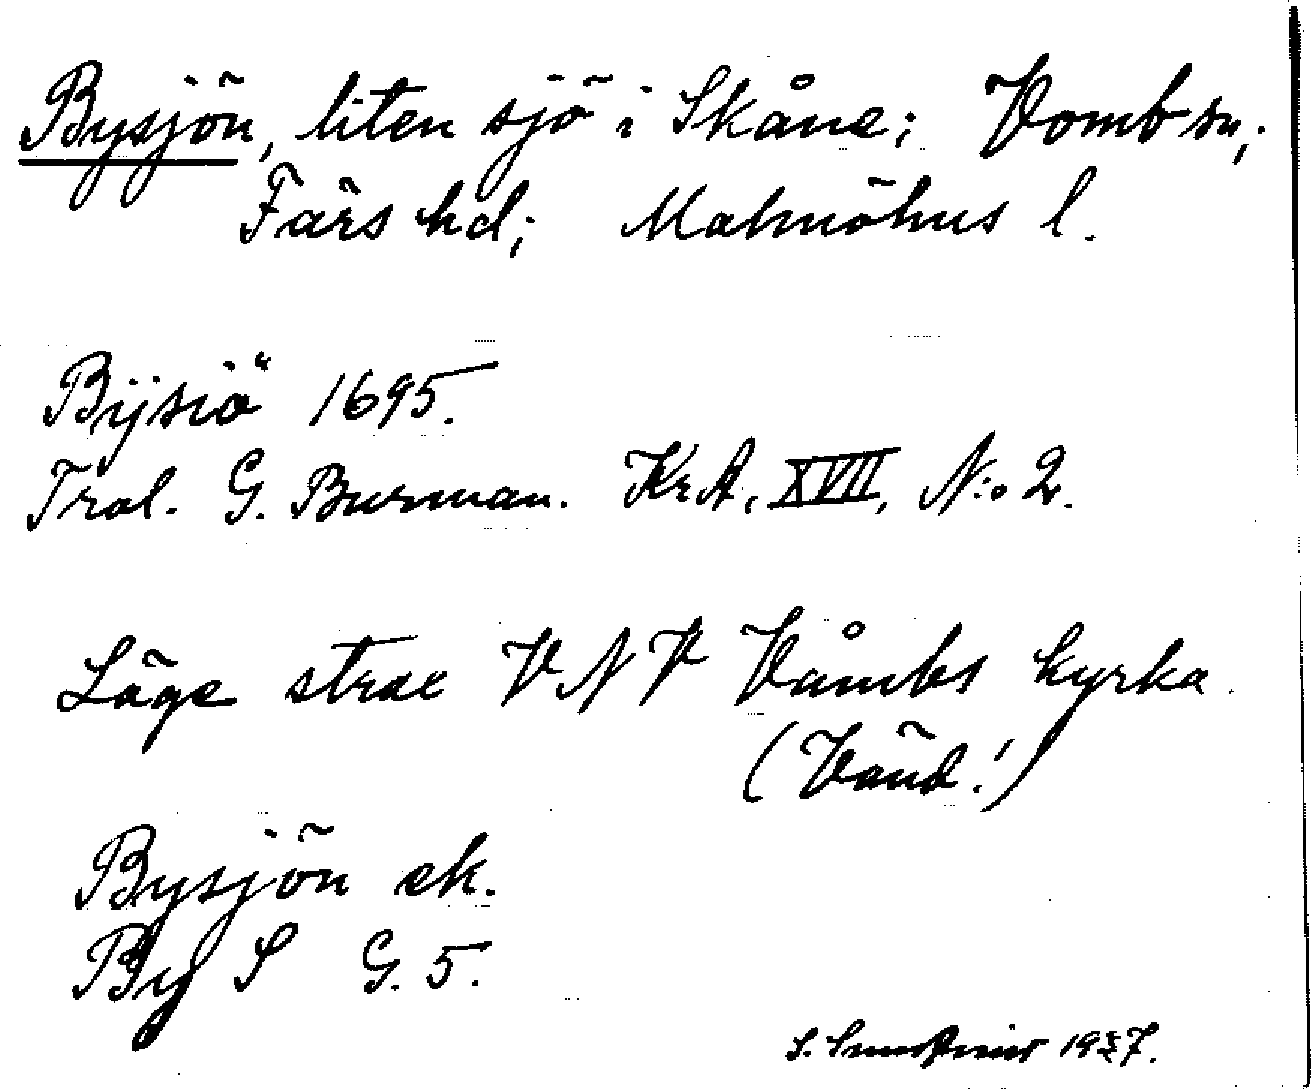 Bysjön, liten sjö i Skåne; Vomb sn;
Färs hd; Malmöhus l.
Bijsiö 1695.
Tral. G. Burman. KrA, XVII, N:o 2.
Läge strax VNV Vombs kyrka.
(Vänd!)
Bysjön ek.
By S G. 5.
S. 19